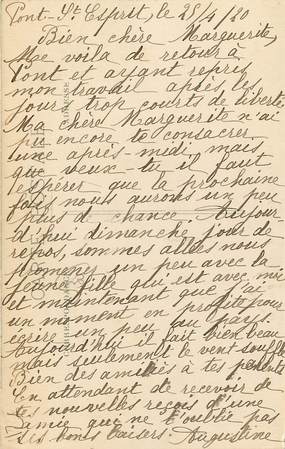 Pont-St Esprit, le 25/4/20
Bien chère Marguerite,
Me voila de retour à
Pont et ayant repris
mon travail après les
jours trop courts de liberté.
Ma chère Marguerite n'ai
pu encore te consacrer
une après-midi mais
que veux-tu il faut
espérer que la prochaine
fois nous aurons un peu
plus de chance. Aujour-
d'hui dimanche jour de
repos, sommes allés nous
promener un peu avec la
jeune fille qui est avec moi
et maintenant que j'ai
un moment en profite pour
écrire un peu au pays.
Aujourd'hui il fait bien beau
mais seulement le vent souffle
Bien des amitiés à tes parents
En attendant de recevoir de
tes nouvelles reçois d'une
amie qui ne t'oublie pas
ses bons baisers. Augustine